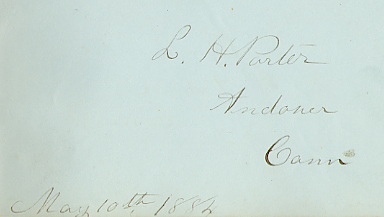 L. H. Porter
Andover
Conn
May 10th, 1884